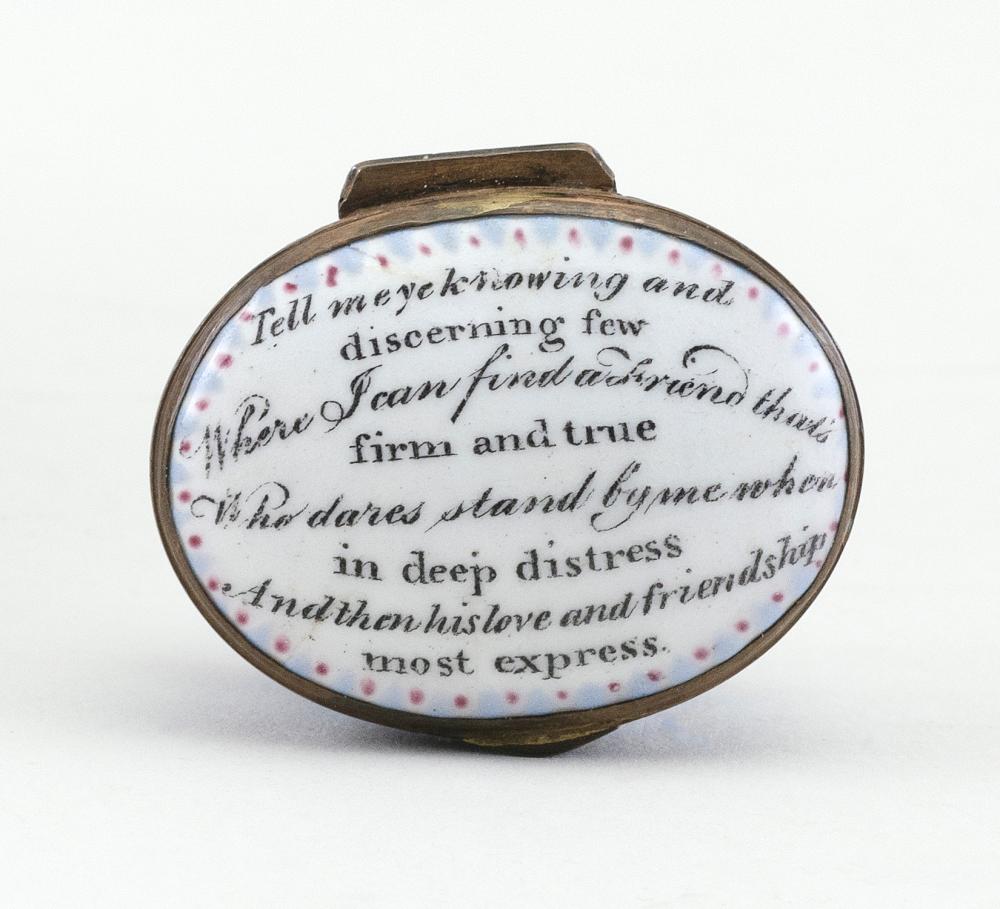 Tell me ye knowing and
discerning few
Where I can find a Friend that's
firm and true
Who dares stand by me when
in deep distress
And then his love and friendship
most express.